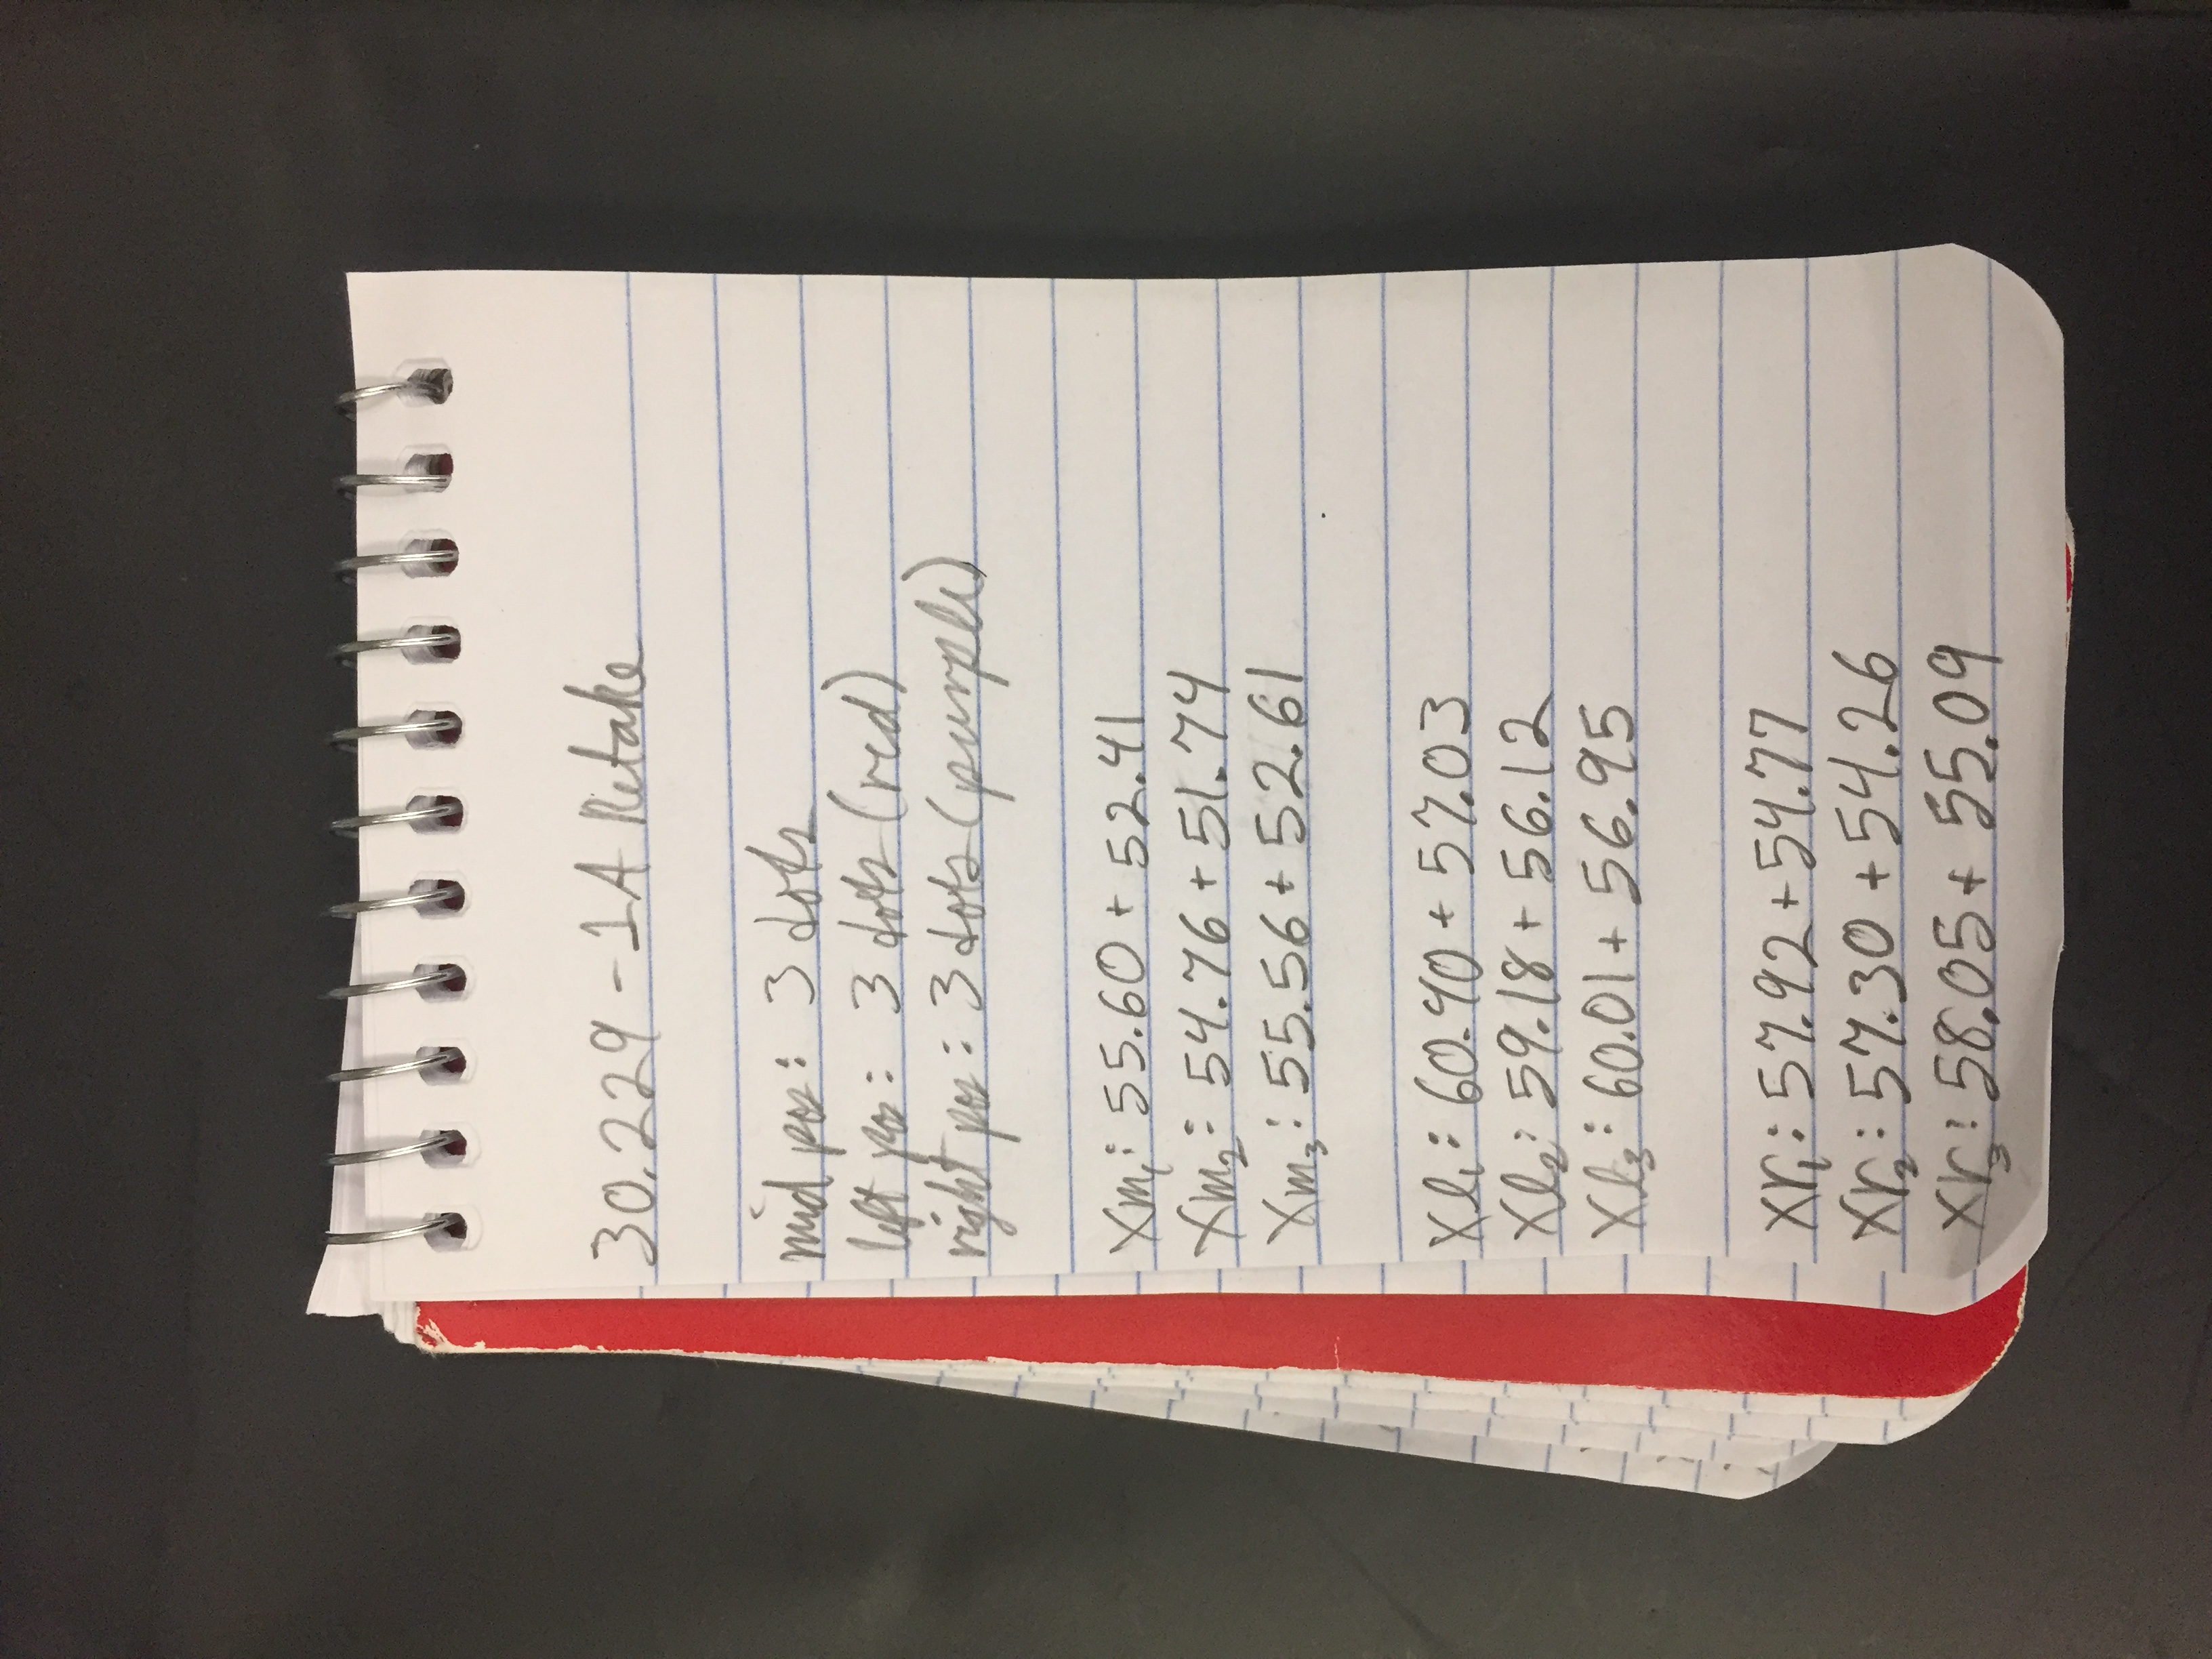 30.229 - 1A Retake
mid pos: 3 dots
left pos: 3 dots (red)
right pos: 3 dots (purple)
Xm₁: 55.60 + 52.41
Xm₂: 54.76 + 51.74
Xm₃: 55.56 + 52.61
Xl₁: 60.40 + 57.03
Xl₂: 59.18 + 56.12
Xl₃: 60.01 + 56.95
Xr₁: 57.92 + 54.77
Xr₂: 57.30 + 54.26
Xr₃: 58.05 + 55.09